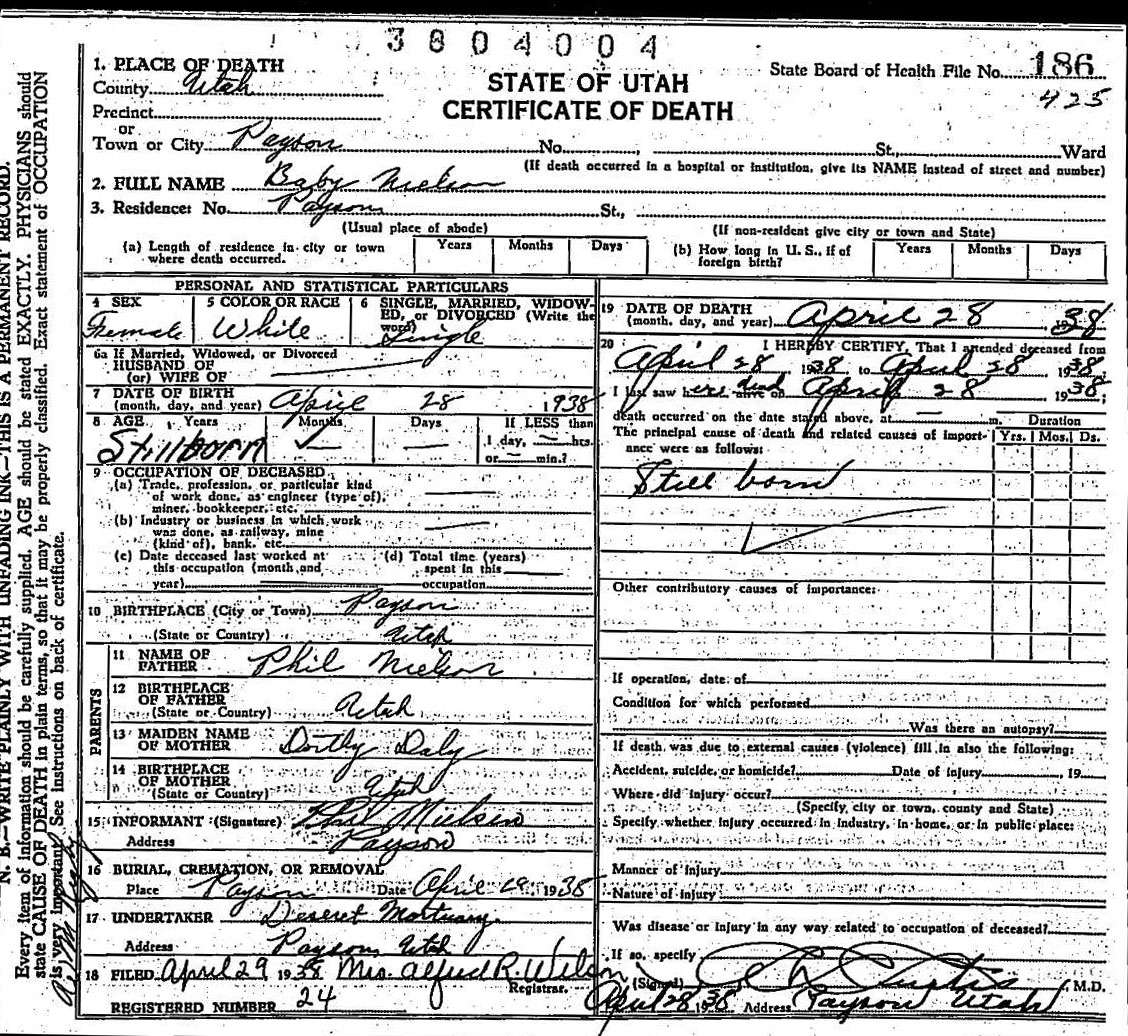 3804004
1. PLACE OF DEATH
County Utah
STATE OF UTAH
CERTIFICATE OF DEATH
State Board of Health File No. 186
425
Precinct
or
Town or City Payson No. , St., Ward
(If death occurred in a hospital or institution, give its NAME instead of street and number)
2. FULL NAME Baby Nielson
3. Residence: No. Payson St.,
(Usual place of abode) (If non-resident give city or town and State)
(a) Length of residence in city or town where death occurred. Years Months Days
(b) How long in U. S., if of foreign birth? Years Months Days
PERSONAL AND STATISTICAL PARTICULARS
4 SEX 5 COLOR OR RACE 6 SINGLE, MARRIED, WIDOW-
ED, or DIVORCED (Write the
word)
Fremale White Single
6a If Married, Widowed, or Divorced
HUSBAND OF
(or) WIFE OF
7 DATE OF BIRTH
(month, day, and year) April 28 1938
8 AGE Years Months Days If LESS than
Stillborn 1 day, hrs.
or min.?
9 OCCUPATION OF DECEASED
(a) Trade, profession, or particular kind
of work done, as engineer (type of),
miner, bookkeeper, etc.
(b) Industry or business in which work
was done, as railway, mine
(kind of), bank, etc.
(c) Date deceased last worked at
this occupation (month and
year)
(d) Total time (years)
spent in this
occupation
10 BIRTHPLACE (City or Town) Payson
(State or Country) Utah
PARENTS
11 NAME OF
FATHER Phil Nielson
12 BIRTHPLACE
OF FATHER
(State or Country) Utah
13 MAIDEN NAME
OF MOTHER Daly
14 BIRTHPLACE
OF MOTHER
(State or Country) Utah
15 INFORMANT (Signature) Phil Nielsen
Address Payson
16 BURIAL, CREMATION, OR REMOVAL
Place Payson Date April 29, 1938
17 UNDERTAKER Deseret Mortuary.
Address Payson Utah
18 FILED April 29 1938 Mrs. Alfred R. Wilson
Registrar.
REGISTERED NUMBER 24
19 DATE OF DEATH
(month, day, and year) April 28 1938
20 I HEREBY CERTIFY, That I attended deceased from
April 28 1938 to April 28 1938;
I last saw her alive on dead April 28 1938;
death occurred on the date stated above, at m. Duration
The principal cause of death and related causes of import- Yrs. Mos. Ds.
ance were as follows:
Still born
Other contributory causes of importance:
If operation, date of
Condition for which performed
Was there an autopsy?
If death was due to external causes (violence) fill in also the following:
Accident, suicide, or homicide? Date of injury , 19
Where did injury occur?
(Specify city or town, county and State)
Specify whether injury occurred in industry, in home, or in public place:
Manner of injury
Nature of injury
Was disease or injury in any way related to occupation of deceased?
If so, specify
(Signed) Curtis , M.D.
April 28 1938 Address Payson Utah
N. B.—WRITE PLAINLY WITH UNFADING INK—THIS IS A PERMANENT RECORD.
Every item of information should be carefully supplied. AGE should be stated EXACTLY. PHYSICIANS should
state CAUSE OF DEATH in plain terms, so that it may be properly classified. Exact statement of OCCUPATION
is very important. See instructions on back of certificate.